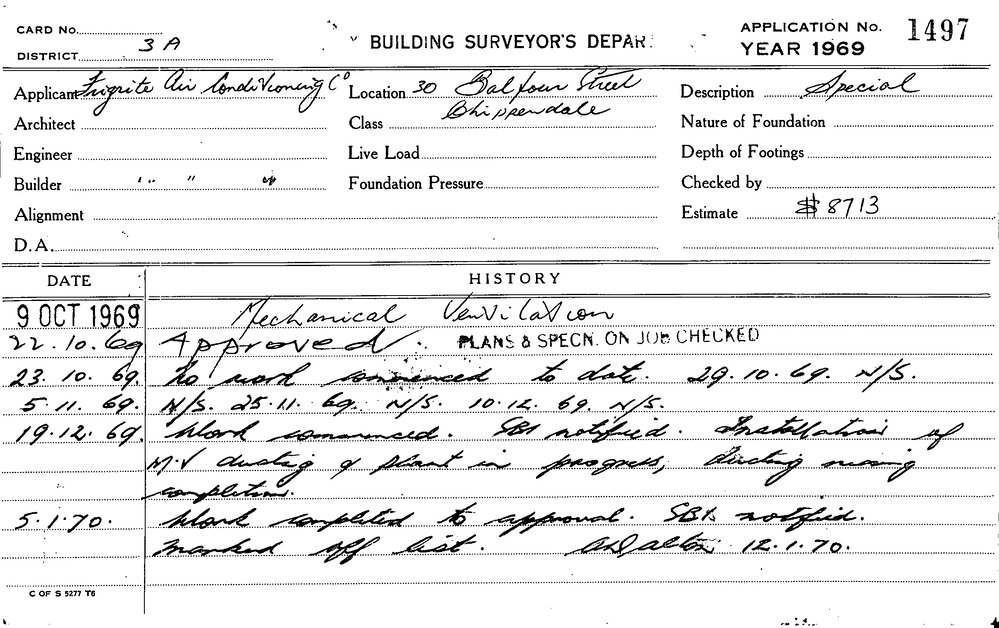 CARD No.
DISTRICT 3A
BUILDING SURVEYOR'S DEPAR
APPLICATION No. 1497
YEAR 1969
Applicant Frigrite Air Conditioning Co
Location 30 Balfour Street
Chippendale
Description Special
Architect
Class
Nature of Foundation
Engineer
Live Load
Depth of Footings
Builder " " "
Foundation Pressure
Checked by
Alignment
Estimate $8713
D.A.
DATE HISTORY
9 OCT 1969 Mechanical Ventilation
22.10.69 Approved. PLANS & SPECN. ON JOB CHECKED
23.10.69. No work commenced to date. 29.10.69. N/S.
5.11.69. N/S. 25.11.69. N/S. 10.12.69. N/S.
19.12.69. Work commenced. SBI notified. Installation of
M.V ducting & plant in progress, ducting nearing
completion.
5.1.70. Work completed to approval. SBI. notified.
Marked off list. 12.1.70.
C OF S 5277 T6